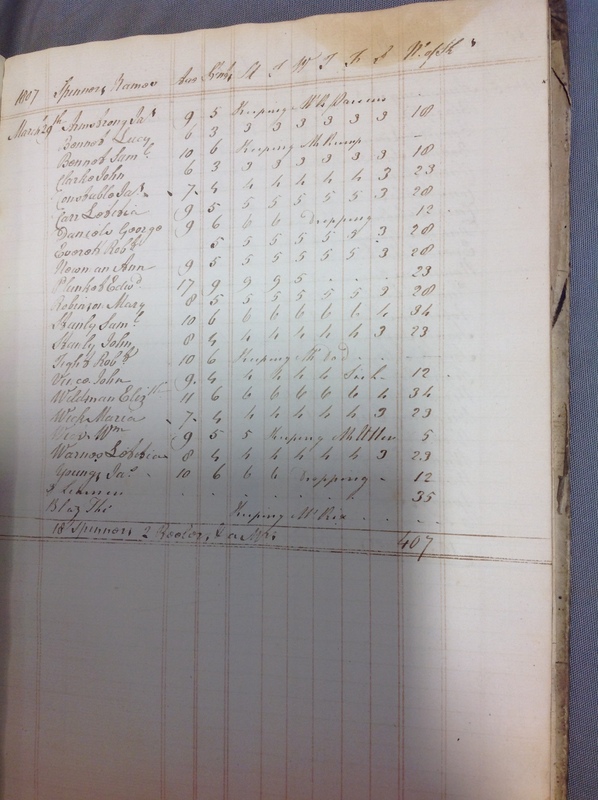 1807 Spinners Names Age Stint M T W T F S No. of Sk s
March 29th Armstrong Jas 9 5 Keeping Mr R Parsons . .
Bennot Lucy 6 3 3 3 3 3 3 3 18
Bennot Saml 10 6 Keeping Mr Kemp -
Clarke John 6 3 3 3 3 3 3 3 18
Constable Jas 7 4 4 4 4 4 4 3 23
Carr Lobitia 9 5 5 5 5 5 5 3 28
Daniels George 9 6 6 6 Dropping 12
Everoh Robt 5 5 5 5 5 5 3 28
Newman Ann 9 5 5 5 5 5 5 3 28
Plunket Edwd 17 9 9 9 5 . . . 23
Robinson Mary 8 5 5 5 5 5 5 3 28
Stanly Saml 10 6 6 6 6 6 6 4 34
Stanly John 8 4 4 4 4 4 4 3 23
Tight Robt 10 6 Keeping Mr . . -
Vince John 9 4 4 4 4 4 Sick 12
Wildman Elizth 11 6 6 6 6 6 6 4 34
Wick Maria 7 4 4 4 4 4 4 3 23
Wick Wm 9 5 5 Keeping Mr 5
Warnes Lobitia 8 4 4 4 4 4 4 3 23
Youngs Jas 10 6 6 6 Dropping 12
3 . . . . . . . . 35
Blaz Tho Keeping Mr Rix . . .
18 Spinners 2 407